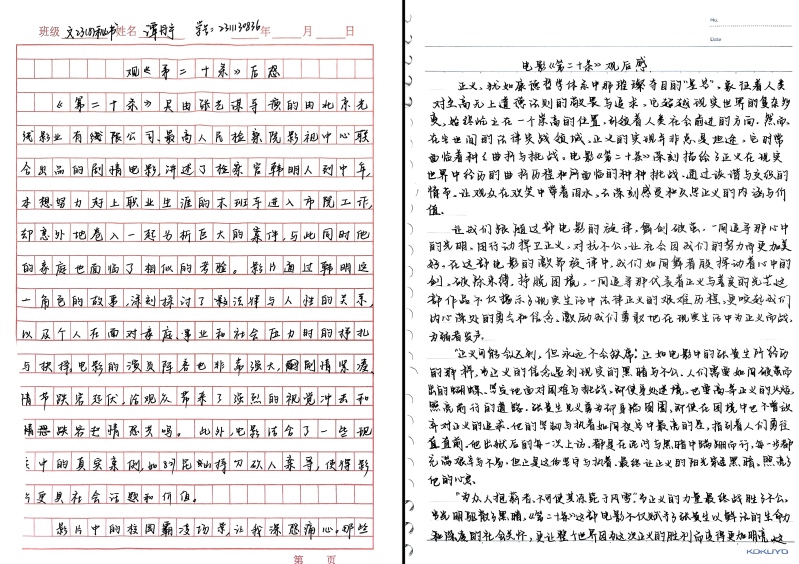 班级 文23(1)秘书 姓名 谭丹宇 学号:2311130836 年 月 日
观《第二十条》后感
《第二十条》是由张艺谋导演的由北京光
线影业有线限公司、最高人民检察院影视中心联
合出品的剧情电影,讲述了检察官韩明人到中年,
本想努力对上职业生涯的末班车进入市院工作,
却意外地卷入一起分析巨大的案件,与此同时他
的家庭也面临了相似的考验。影片通过韩明这
一角色的故事,深刻探讨了影法律与人性的关系,
以及个人在面对家庭、事业和社会压力时的挣扎
与抉择,电影的演员阵容也非常强大,剧情紧凑,
情节跌宕起伏,给观众带来了强烈的视觉冲击和
情感跌宕起情感共鸣。此外,电影结合了一些现
实中的真实案例,如 持刀砍人案等,使得影
片更具社会话题和价值。
影片中的校园霸凌场景,让我深感痛心。那些
第 页
No.
Date
电影《第二十条》观后感
正义,犹如康德哲学体系中那璀璨夺目的"星芒",象征着人类
对至高无上道德法则的敬畏与追求,它超越现实世界的复杂多
变,始终屹立在一个崇高的位置,引领着人类社会前进的方向。然而,
在尘世间的法律实战领域,正义的实现并非总是坦途,它时常
面临着种种曲折与挑战。电影《第二十条》深刻描绘了正义在现实
世界中经历的曲折历程和所面临的种种挑战,通过诙谐与交织的
情节,让观众在欢笑中带着泪水,去深刻感受和反思正义的内涵与价
值。
让我们跟随这部电影的旋律,舞剑破茧,一同追寻那心中
的光明。用行动捍卫正义,对抗不公,让社会因我们的努力而更加美
好。在这部电影的激昂旋律中,我们如同舞者般挥动着心中的
剑,破除束缚,挣脱困境,一同追寻那代表着正义与善良的光芒。这
部作品不仅揭示了现实生活中法律正义的艰难历程,更唤起我们
内心深处的勇气和信念,激励我们勇敢地在现实生活中为正义而战,
为弱者发声。
"正义可能会迟到,但永远不会缺席。"正如电影中的张贵生所经历
的那样,当正义的信念遇到现实的黑暗与不公,人们需要如同破茧而
出的蝴蝶,坚定地面对困难与挑战,即使身处逆境,也要高举正义的火焰,
照亮前行的道路。张贵生见义勇为却身陷囹圄,即使在困境中也不曾放
弃对正义的追求,他的坚韧与执着如同夜空中最亮的星,指引着人们勇往
直直前。他出狱后的每一次上访,都是在泥泞与黑暗中蹒跚而行,每一步都
充满艰辛与不易,但正是这份坚守与执着,最终让正义的阳光穿透黑暗,照亮了
他的心灵。
"为众人抱薪者,不可使其冻毙于风雪。"当正义的力量最终战胜了不公,
当光明驱散了黑暗,《第二十条》这部电影不仅赋予了张贵生以鲜活的生命力
和深度的社会关怀,更让整个世界因为这次正义的胜利而变得更加明亮,这
KOKUYO